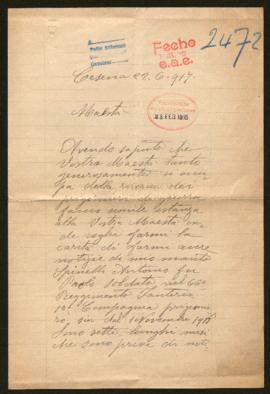 Fecho
e.a.e.
2472
Cesena 22.6.917
Maestà
Avendo saputo che
Vostra Maestà tanto
generosamente si occu
pa della ricerca dei
prigionieri di guerra
faccio umile istanza
alla Vostra Maestà on
de voglia farmi la
carità di farmi avere
notizie di mio marito
Spinelli Antonio fu
Paolo soldato nel 66º
Reggimento Fanteria
Compagnia prigionie
ro, sin dal 1 Novembre 1916
Sono sette lunghi mesi
che sono priva di noti